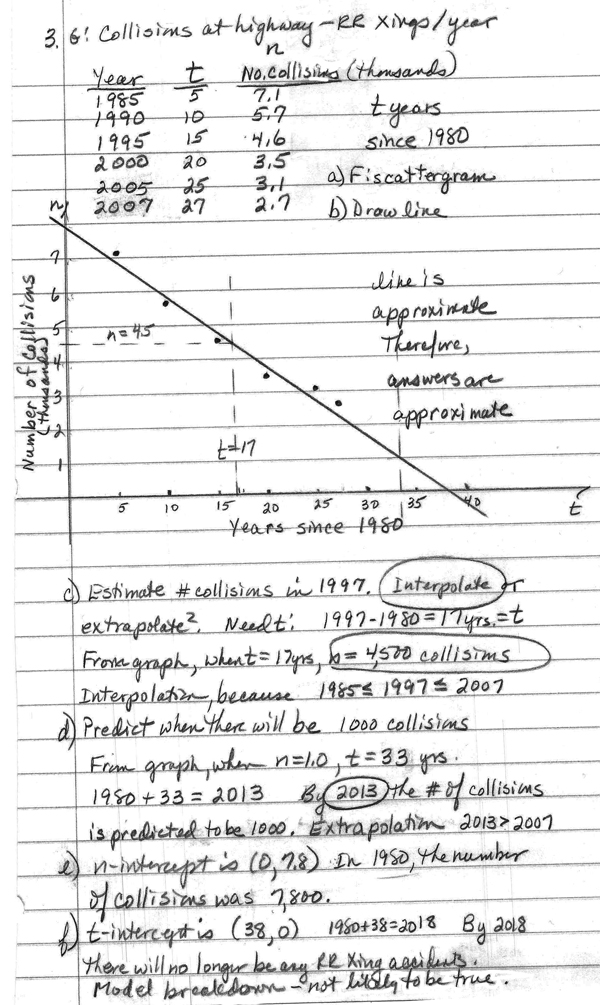 3. G: Collisions at highway-RR Xings/year
n
Year t No. collisions (thousands)
1985 5 7.1
1990 10 5.7 t years
1995 15 4.6 since 1980
2000 20 3.5
2005 25 3.1 a) Fi scattergram
2007 27 2.7 b) Draw line
n
7
6
5
4
3
2
1
Number of Collisions
(thousands)
n=45
t=17
line is
approximate
Therefore,
answers are
approximate
5 10 15 20 25 30 35 40 t
Years since 1980
c) Estimate # collisions in 1997. Interpolate or
extrapolate?. Need t: 1997-1980=17yrs.=t
From graph, when t=17yrs, n=4,500 collisions
Interpolation, because 1985≤1997≤2007
d) Predict when there will be 1000 collisions
From graph, when n=1.0, t=33 yrs.
1980+33=2013 By 2013 the # of collisions
is predicted to be 1000. Extrapolation 2013>2007
e) n-intercept is (0,7.8) In 1980, the number
of collisions was 7,800.
f) t-intercept is (38,0) 1980+38=2018 By 2018
there will no longer be any RR Xing accidents.
Model breakdown - not likely to be true.